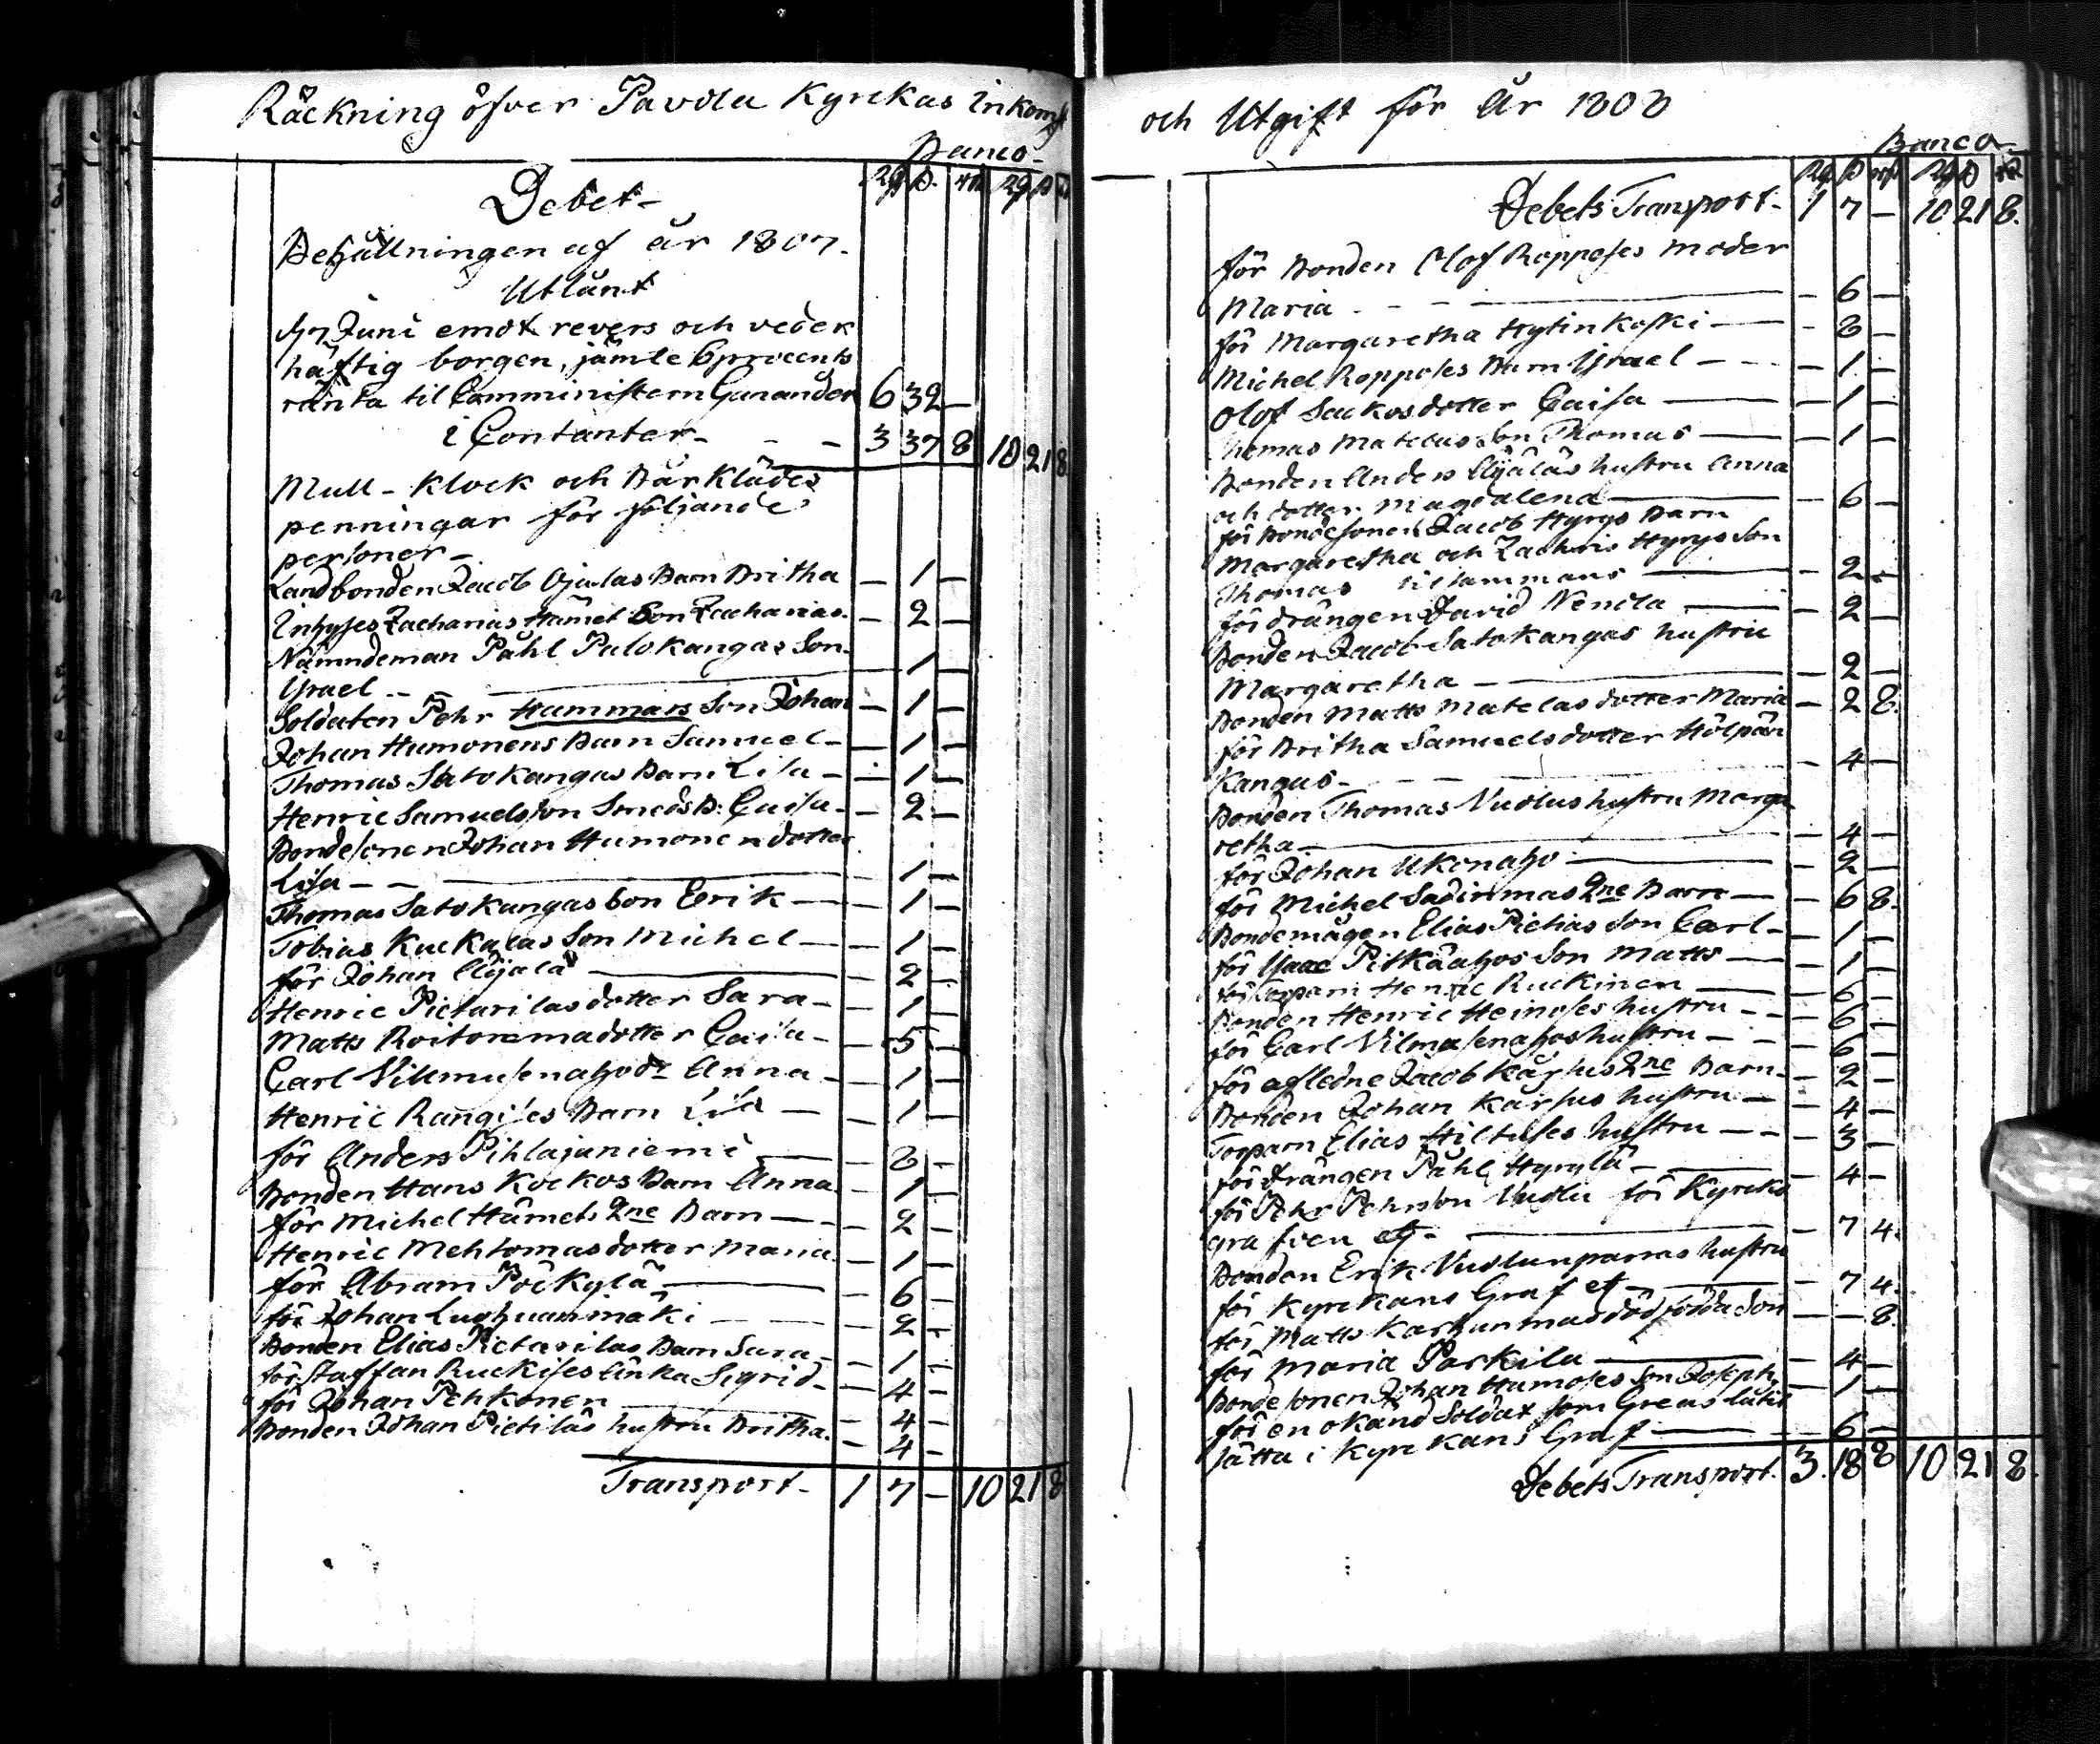 Räckning öfver Pavola Kyrckas Inkomst
Banco
Rd ß. rst Rd ß r
Debet
Behållningen af år 1807.
Utlånt
d 7 Juni emot revers och veder
häftig borgen, jämte 6 procents
ränta til Comministern Ganander 6 32 —
i Contanter - - - 3 37 8 10 21 8
Mull - klock och Bårklädes
penningar för följande
personer -
Landbonden Jacob Ojalas Barn Britha — 1 —
Inhyses Zacharias Hämet Son Zacharias. — 2 —
Nämndeman Påhl Palokangas Son
Israel - - — 1 —
Soldaten Pehr Hammars Son Johan — 1 —
Johan Humonens Barn Samuel — 1 —
Thomas Satokangas Barn Lisa — 1 —
Henric Samuelsson Smeds B: Caisa — 2 —
Bondesonen Johan Humonen dotter
Lisa - - — 1 —
Thomas Satokangas Son Erik — 1 —
Tobias Kuckalas Son Michel — 1 —
för Johan Äijälä — 2 —
Henric Pietarilas dotter Sara — 1 —
Matts Roitoramadotter Caisa — 5 —
Carl Villmusenahodr Anna — 1 —
Henric Rangises Barn Lisa — 1 —
för Anders Pihlajaniemi — 8 —
Bonden Hans Kockos Barn Anna — 1 —
för Michel Hämets 2ne Barn — 2 —
Henric Mehtomas dotter Maria — 1 —
för Abram Pöckylä — 6 —
för Johan Luohuanmäki — 2 —
Bonden Elias Pietarilas Barn Sara — 1 —
för Staffan Ruckises änka Sigrid — 4 —
för Johan Pehkonen — 4 —
Bonden Johan Pietiläs hustru Britha. — 4 —
Transport - 1 7 — 10 21 8
och Utgift för År 1808
Banco
Rd ß rst Rd ß r
Debets Transport - 1 7 — 10 21 8.
för Bonden Olof Ropposes moder
Maria — 6 —
för Margaretha Hytinkoski — 8 —
Michel Ropposes Barn Israel — 1 —
Olof Sackos dotter Caisa — 1 —
Thomas Matelas Son Thomas — 1 —
Bonden Anders Äijäläs hustru Anna
och dotter Magdalena — 6 —
för Bondesonen Jacob Hyrys Barn
Margaretha och Zachris Hyrys Son
Thomas tilsammans — 2 —
för drängen David Nenola — 2 —
Bonden Jacob Satokangas hustru
Margaretha — 2 —
Bonden Matts Matelas dotter Maria — 2 8.
för Britha Samuelsdotter Hölpän
kangas — 4 —
Bonden Thomas Vuolus hustru Marga
retha — 4 —
för Johan Ukonaho — 2 —
för Michel Sadinmas 2ne Barn — 6 8.
Bondemågen Elias Pietias Son Carl — 1 —
för Isaac Pitkäahos Son Matts — 1 —
för Torparn Henric Ruckinen — 6 —
Bonden Henric Heinoses hustru — 6 —
för Carl Vilmusenahos hustru — 6 —
för afledne Jacob Kärhus 2ne Barn — 2 —
Bonden Johan Kärhus hustru — 4 —
Torparn Elias Hiltuses hustru — 3 —
för drängen Påhl Hyrylä — 4 —
för Pehr Pehrsson Vuolu för Kyrcko
grafven etc. — 7 4.
Bonden Erik Vuolunparras hustru
för Kyrckans Graf etc — 7 4.
för Matts Karhunmas dödfödda Son — — 8.
för Maria Parkila — 4 —
Bondesonen Johan Humoses Son Joseph — 1 —
för en okänd Soldat som Greas låtit
sätta i Kyrckans Graf — 6 —
Debets Transport. 3. 18 8 10 21 8.